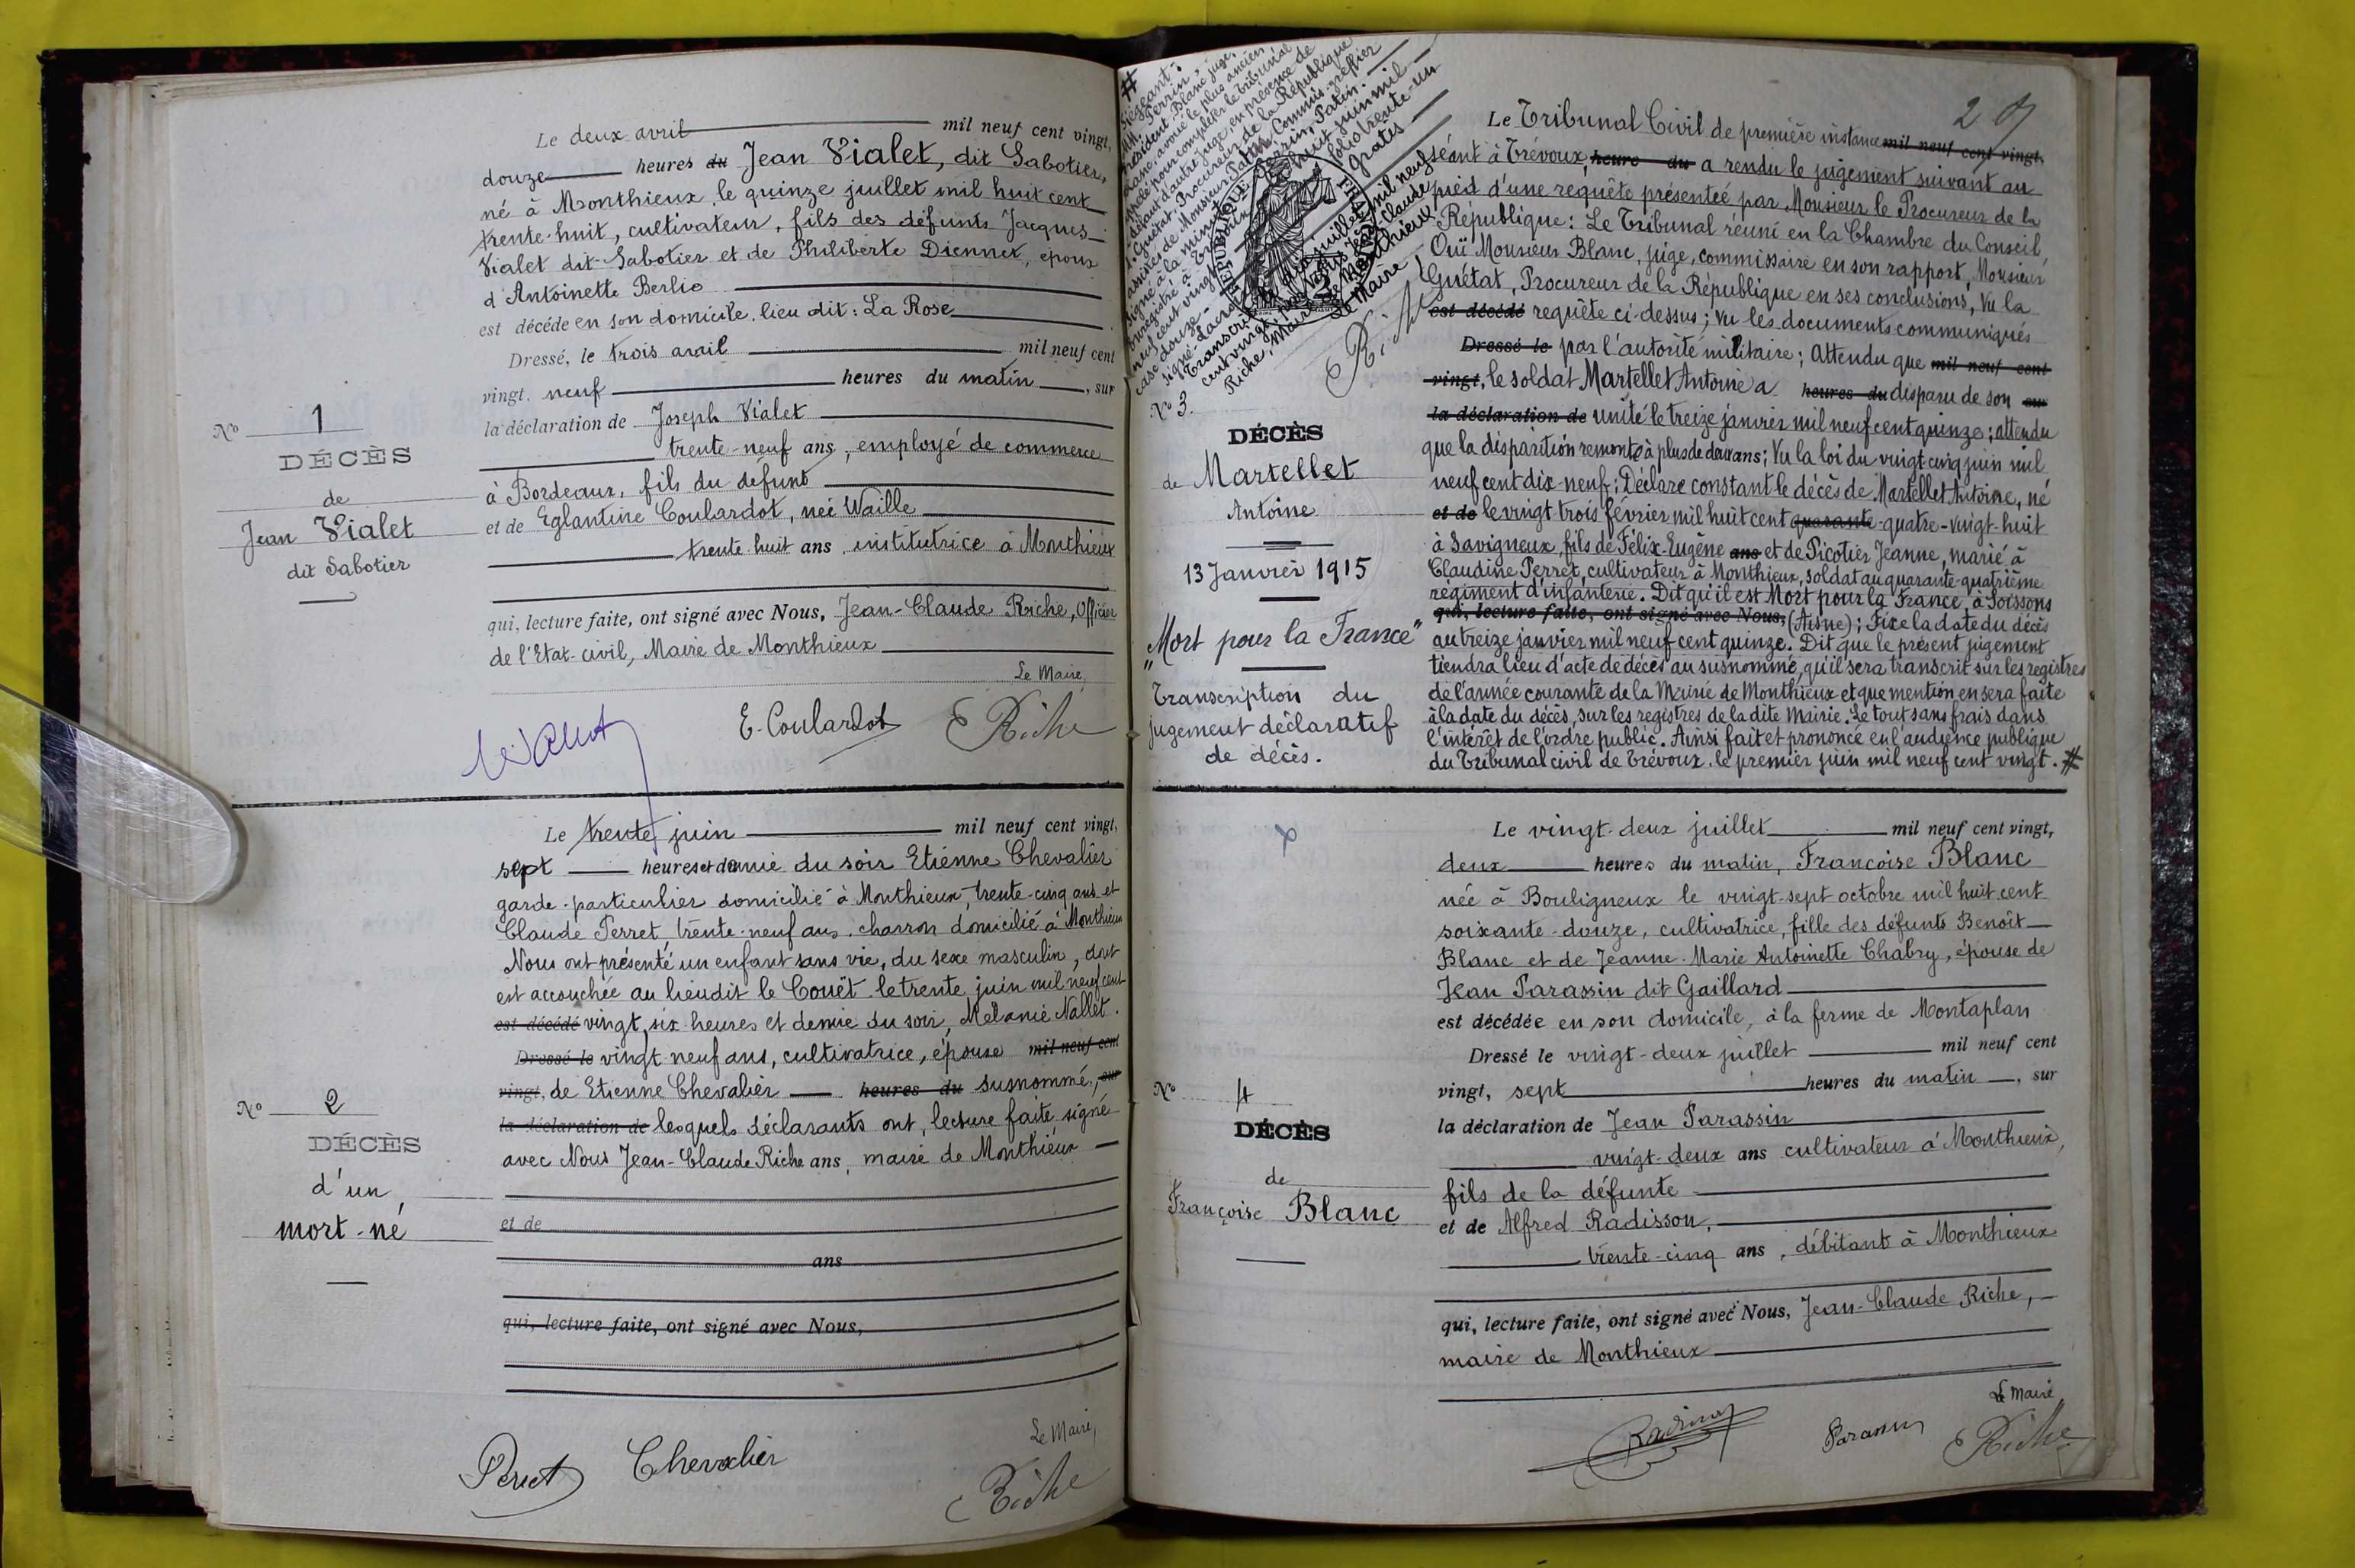 Le deux avril mil neuf cent vingt,
douze heures du Jean Vialet, dit Sabotier,
né à Monthieux, le quinze juillet mil huit cent
trente-huit, cultivateur, fils des défunts Jacques
Vialet dit Sabotier et de Philiberte Diennet, époux
d'Antoinette Berlie
est décédé en son domicile, lieu dit: La Rose
Dressé, le trois avril mil neuf cent
vingt, neuf heures du matin, sur
la déclaration de Joseph Vialet
trente-neuf ans, employé de commerce
à Bordeaux, fils du défunt
et de Eglantine Coulardot, née Waille
trente-huit ans, institutrice à Monthieux
qui, lecture faite, ont signé avec Nous, Jean-Claude Riche, Officier
de l'Etat-civil, Maire de Monthieux
Le Maire,
E. Coulardot Riche
No 1
DÉCÈS
de
Jean Vialet
dit Sabotier
Le trente juin mil neuf cent vingt,
sept heures et demie du soir Etienne Chevalier
garde-particulier domicilié à Monthieux, trente-cinq ans et
Claude Perret trente-neuf ans, charron domicilié à Monthieux
Nous ont présenté un enfant sans vie, du sexe masculin, dont
est accouchée au lieudit le Couët, le trente juin mil neuf cent
est décédé vingt, six heures et demie du soir, Mélanie Nallet.
Dressé le vingt-neuf ans, cultivatrice, épouse mil neuf cent
vingt, de Etienne Chevalier heures du susnommé, sur
la déclaration de lesquels déclarants ont, lecture faite signé
avec Nous Jean-Claude Riche ans, maire de Monthieux
et de
ans
qui, lecture faite, ont signé avec Nous,
Le Maire,
Perret Chevalier Riche
No 2
DÉCÈS
d'un
mort-né
#
Siégeant:
MM. Perrin,
président, Blanc juge,
avoué le plus ancien
pour compléter le tribunal
défaut d'autre juge, en présence de
Guétat, Procureur de la République
assistés de Monsieur Patin, Commis-greffier
signé à la minute: Perrin, Patin.
Enregistré à Trévoux le huit juin mil
neuf cent vingt folio trente-un
case douze Gratis
Transcrit juillet mil neuf
cent vingt, par Nous Jean-Claude
Riche, Maire de Monthieux
Le Maire,
Riche
RÉPUBLIQUE FRANÇAISE
No 3.
DÉCÈS
de Martellet
Antoine
13 Janvier 1915
"Mort pour la France"
Transcription du
jugement déclaratif
de décès.
Le Tribunal Civil de première instance mil neuf cent vingt,
séant à Trévoux, heure du a rendu le jugement suivant au
pied d'une requête présentée par Monsieur le Procureur de la
République: Le Tribunal réuni en la Chambre du Conseil,
Ouï Monsieur Blanc, juge, commissaire en son rapport, Monsieur
Guétat, Procureur de la République en ses conclusions, Vu la
est décédé requête ci-dessus; Vu les documents communiqués
Dressé le par l'autorité militaire; Attendu que mil neuf cent
vingt, le soldat Martellet Antoine a heures du disparu de son sur
la déclaration de unité le treize janvier mil neuf cent quinze; attendu
que la disparition remonte à plus de deux ans; Vu la loi du vingt-cinq juin mil
neuf cent dix-neuf; Déclare constant le décès de Martellet Antoine, né
et de le vingt trois février mil huit cent quarante-quatre-vingt-huit
à Savigneux, fils de Félix-Eugène ans et de Picotier Jeanne, marié à
Claudine Perret, cultivateur à Monthieux, soldat au quarante-quatrième
régiment d'infanterie. Dit qu'il est Mort pour la France, à Soissons
qui, lecture faite, ont signé avec Nous, (Aisne); Fixe la date du décès
au treize janvier mil neuf cent quinze. Dit que le présent jugement
tiendra lieu d'acte de décès au susnommé, qu'il sera transcrit sur les registres
de l'année courante de la Mairie de Monthieux et que mention en sera faite
à la date du décès, sur les registres de la dite Mairie. Le tout sans frais dans
l'intérêt de l'ordre public. Ainsi fait et prononcé en l'audience publique
du Tribunal civil de Trévoux, le premier juin mil neuf cent vingt. #
Le vingt-deux juillet mil neuf cent vingt,
deux heures du matin, Françoise Blanc
née à Bouligneux le vingt-sept octobre mil huit cent
soixante-douze, cultivatrice, fille des défunts Benoît
Blanc et de Jeanne-Marie Antoinette Chabry, épouse de
Jean Parassin dit Gaillard
est décédée en son domicile, à la ferme de Montaplan
Dressé le vingt-deux juillet mil neuf cent
vingt, sept heures du matin, sur
la déclaration de Jean Parassin
vingt-deux ans cultivateur à Monthieux,
fils de la défunte
et de Alfred Radisson,
trente-cinq ans, débitant à Monthieux
qui, lecture faite, ont signé avec Nous, Jean-Claude Riche,
maire de Monthieux
Le Maire
Radisson Parassin Riche
No 4
DÉCÈS
de
Françoise Blanc